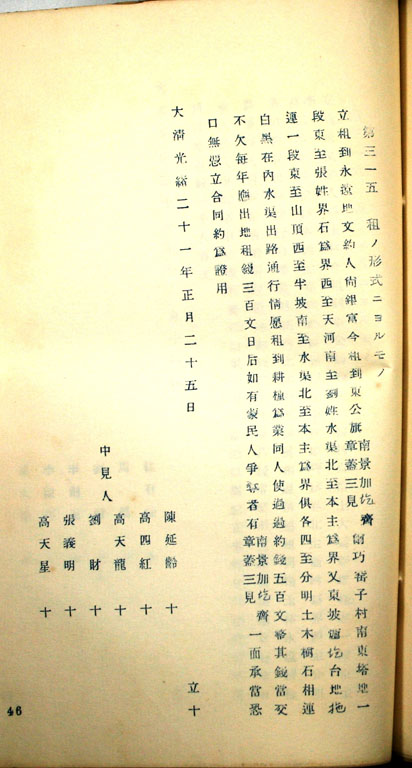 第三一五 租ノ形式ニヨルモノ
立租到永遠地文約人尙銀富今租到東公旅 南景加圪 章蓋三見 齊 村南東塔地一
段東至張姓界石爲界西至天河南至劉姓水渠北至本主爲界又東坡 圪台地拖
連一段東至山頂西至半坡南至水渠北至本主爲界俱各四至分明土木樹石相連
白黑在內水渠出路通行情愿租到耕種爲業同人使過過約錢五百文 其錢當交
不欠每年應出地租錢三百文日后如有蒙民人爭奪者有 南景加圪 章蓋三見 齊 一面承當恐
口無憑立合同約爲證用
大淸光緖二十一年正月二十五日
立十
中見人
陳延齡 十
高四紅 十
高天龍 十
劉財 十
張義明 十
高天星 十
46